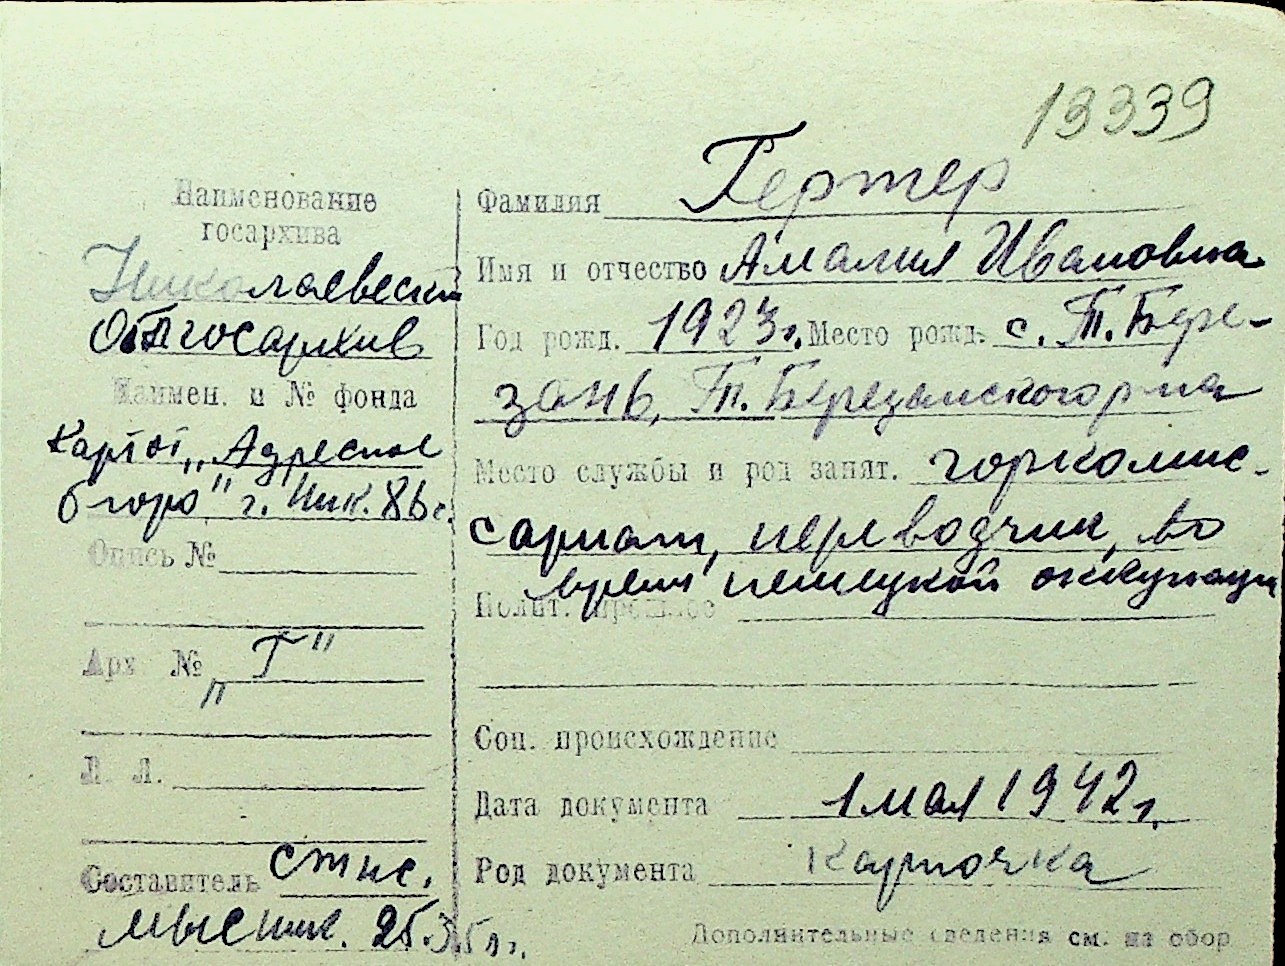 13339
Наименование
госархива
Николаевский
Облгосархив
Наимен. и № фонда
Картот. „Адресное
бюро" г. Ник.
Опись №
Арх № „Г"
Л. Л.
Составитель
25.3.51 г.
Фамилия Гертер
Имя и отчество Амалия Ивановна
Год рожд. 1923 г. Место рожд. с. Т. Бере-
зань, Т. Березанского р-на
Место службы и род занят. горкомис-
сариат, переводчик, во
время немецкой оккупации
Полит. прошлое
Соц. происхождение
Дата документа 1 мая 1942 г.
Род документа карточка
Дополнительные сведения см. на обор